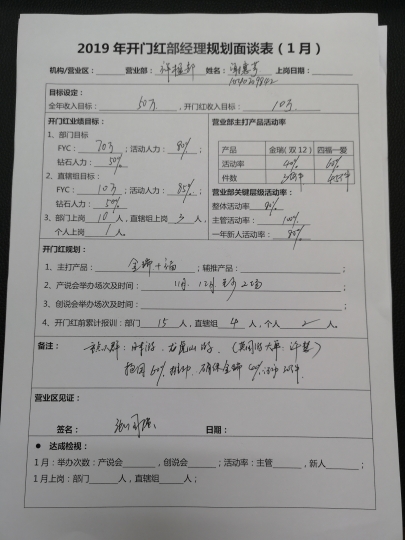 2019 年开门红部经理规划面谈表（1 月）
机构/营业区： 营业部： 姓名： 上岗日期：
目标设定：
全年收入目标： 50万 ，开门红收入目标： 10万
开门红业绩目标：
1、部门目标
FYC： 70万 ；活动人力： 80% ；
钻石人力： 50%
2、直辖组目标：
FYC： 10万 ；活动人力： 85% ；
钻石人力： 50%
3、部门上岗 10 人，直辖组上岗 3 人，
个人上岗 1 人。
营业部主打产品活动率
产品 金瑞（双 12） 四福一爱
活动率 40% 60%
件数
营业部关键层级活动率：
整体活动率 80%
主管活动率： 100%
一年新人活动率： 80%
开门红规划：
1、主打产品： 金瑞+福 ；辅推产品： ；
2、产说会举办场次及时间： 11月、12月 2场
3、创说会举办场次及时间： ；
4、开门红前累计报训：部门 15 人，直辖组 4 人，个人 2 人。
备注：
营业区见证：
签名： 日期：
● 达成检视：
1 月：举办次数：产说会 ，创说会 ；活动率：主管 ，新人 ；
1 月上岗：部门 人，直辖组 人；